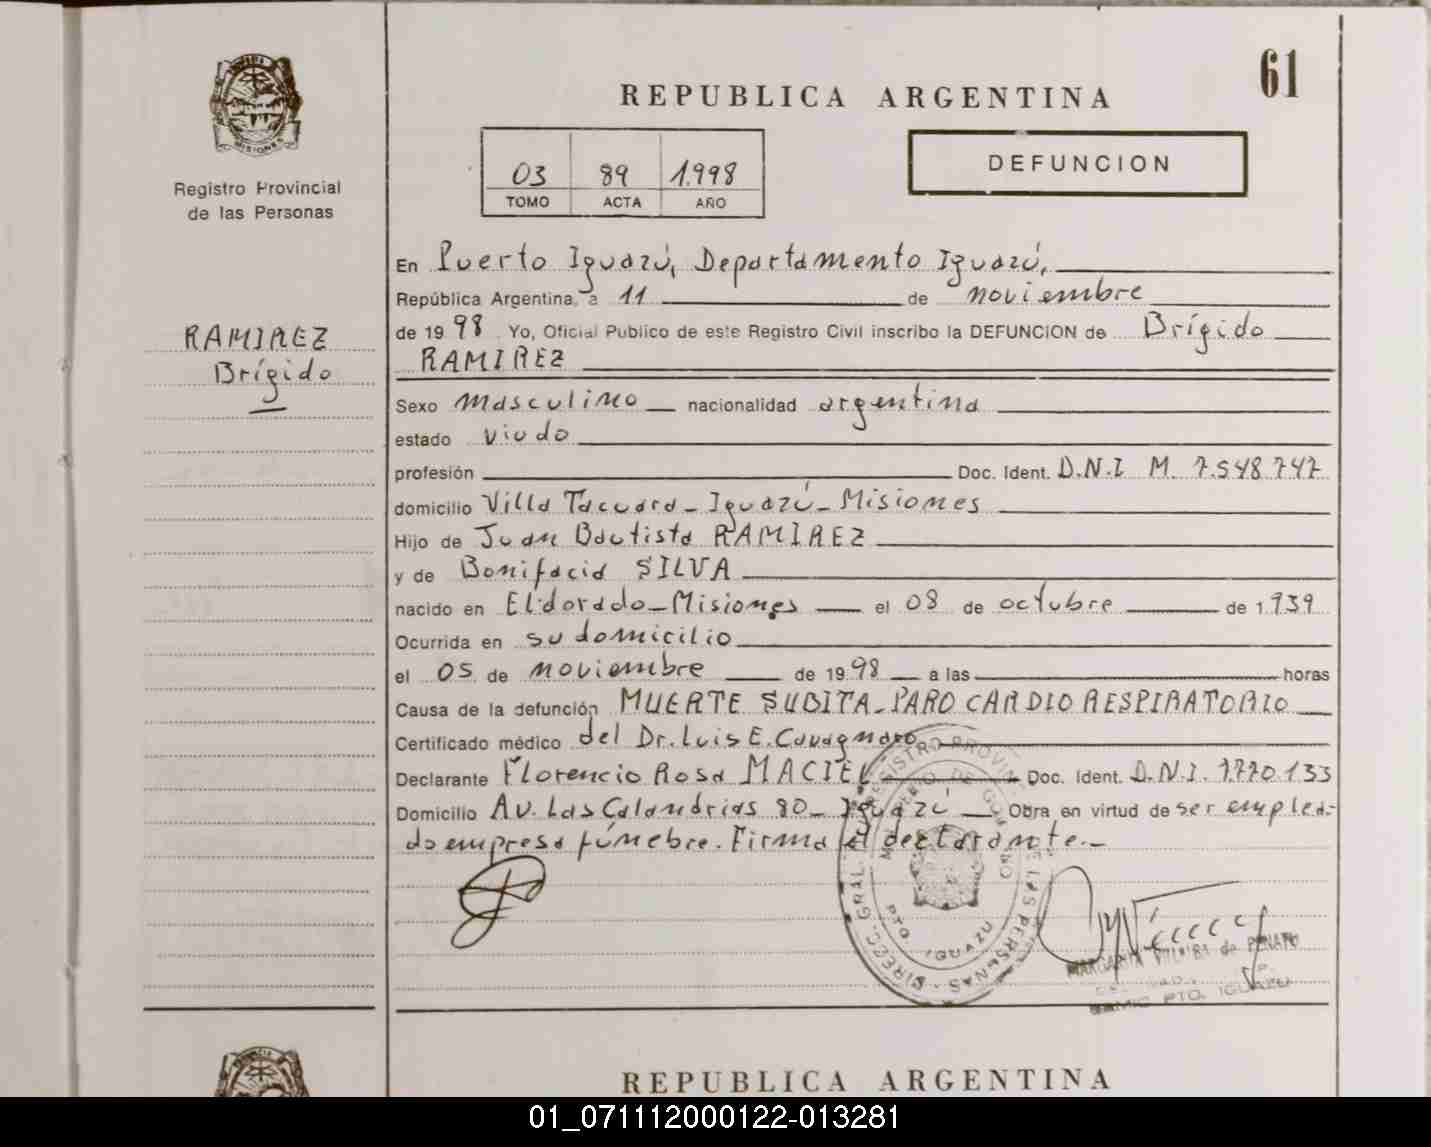 61
REPUBLICA ARGENTINA
MISIONES
Registro Provincial
de las Personas
DEFUNCION
03 89 1.998
TOMO ACTA AÑO
En Puerto Iguazú, Departamento Iguazú,
República Argentina, a 11 de noviembre
de 19 98 Yo, Oficial Publico de este Registro Civil inscribo la DEFUNCION de Brígido
RAMIREZ
RAMIREZ
Brígido
Sexo masculino nacionalidad argentina
estado viudo
profesión Doc. Ident. D.N.I M. 7.548.747
domicilio Villa Tacuara - Iguazú - Misiones
Hijo de Juan Bautista RAMIREZ
y de Bonifacia SILVA
nacido en Eldorado - Misiones el 08 de octubre de 1.939
Ocurrida en su domicilio
el 05 de noviembre de 19 98 a las horas
Causa de la defunción MUERTE SUBITA - PARO CARDIO RESPIRATORIO
Certificado médico del Dr. Luis E. Cavagnaro
Declarante Florencio Rosa MACIEL Doc. Ident. D.N.I. 7.770.133
Domicilio Av. Las Calandrias 80 - Iguazú Obra en virtud de ser emplea-
do empresa fúnebre. Firma el declarante.-
DIRECC. GRAL. REGISTRO PROVINC. DE LAS PERSONAS
PTO. IGUAZU
MARGARITA de PENAYO
PTO. IGUAZU
REPUBLICA ARGENTINA
01_071112000122-013281